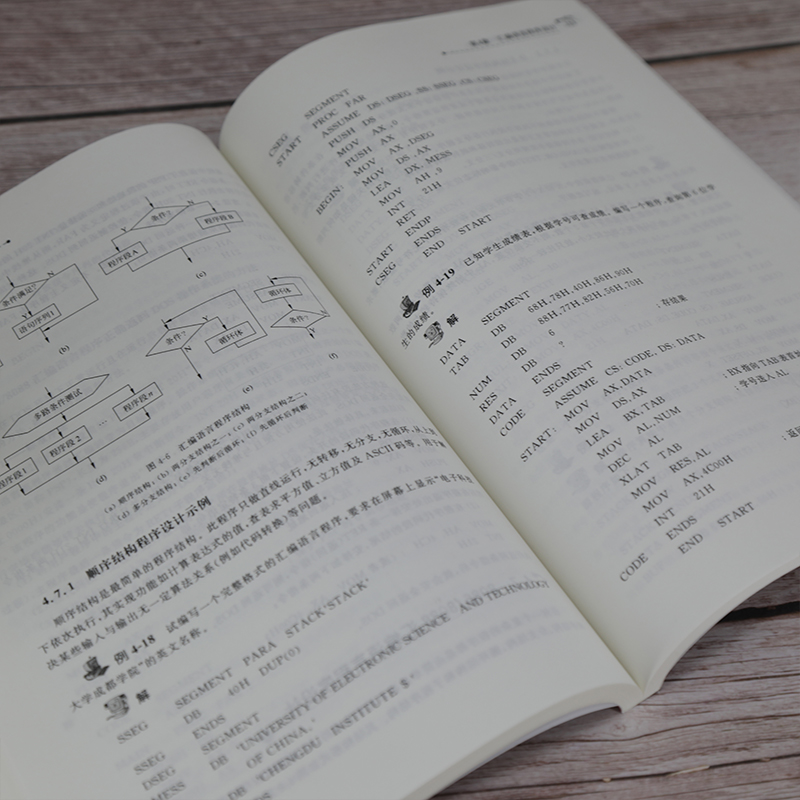 条件?
Y
N
程序段A
程序段B
(c)
条件满足?
N
Y
语句序列1
(b)
条件?
Y
N
循环体
(e)
循环体
条件?
N
Y
(f)
多路条件测试
程序段1
程序段2
程序段n
(d)
图 4-6 汇编语言程序结构
(a) 顺序结构,(b) 两分支结构之一,(c) 两分支结构之二,
(d) 多分支结构,(e) 先判断后循环,(f) 先循环后判断
4.7.1 顺序结构程序设计示例
顺序结构是最简单的程序结构。此程序只做直线运行,无转移,无分支,无循环,从上到
下依次执行,其实现功能如计算表达式的值,查表求平方值、立方值及ASCII码等。用于解
决某些输入与输出无一定算法关系(例如代码转换)等问题。
例 4-18 试编写一个完整格式的汇编语言程序,要求在屏幕上显示“电子科技
大学成都学院”的英文名称。
解
SSEG SEGMENT PARA STACK'STACK'
DB 40H DUP(0)
SSEG ENDS
DSEG SEGMENT
MESS DB 'UNIVERSITY OF ELECTRONIC SCIENCE AND TECHNOLOGY
OF CHINA,'
DB 'CHENGDU INSTITUTE $'
DS
CSEG SEGMENT
START PROC FAR
ASSUME DS:DSEG,SS:SSEG,CS:CSEG
PUSH DS
MOV AX,0
PUSH AX
BEGIN: MOV AX,DSEG
MOV DS,AX
LEA DX,MESS
MOV AH,9
INT 21H
RET
START ENDP
CSEG ENDS
END START
例 4-19 已知学生成绩表,根据学号可查成绩。编写一个程序,查出第6位学
生的成绩。
解
DATA SEGMENT
TAB DB 68H,78H,40H,86H,90H
DB 88H,77H,82H,56H,70H
NUM DB 6
RES DB ? ;存结果
DATA ENDS
CODE SEGMENT
ASSUME CS:CODE,DS:DATA
START: MOV AX,DATA
MOV DS,AX
LEA BX,TAB ;BX指向TAB表首
MOV AL,NUM ;学号送入AL
DEC AL
XLAT TAB
MOV RES,AL
MOV AX,4C00H ;返回
INT 21H
CODE ENDS
END START